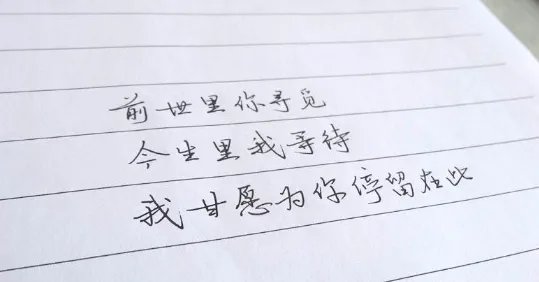 前世里你寻觅
今生里我等待
我甘愿为你停留在此